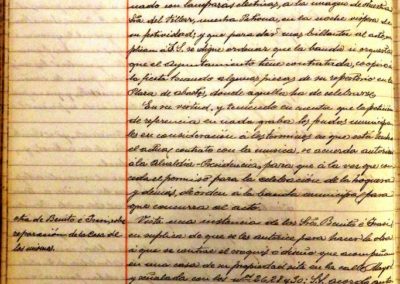 nado con lamparas electricas, a la imagen de Nuestra
Sra. del Villar, nuestra Patrona, en la noche vispera de
su festividad; y que para dar mas brillantez al acto,
suplican á S. S. se digne ordenar que la banda ú orquesta
que el Ayuntamiento tiene contratada, coopere á
la fiesta tocando algunas piezas de su repertorio en la
Plaza de abastos, donde aquella ha de celebrarse.
En su virtud, y teniendo en cuenta que la peticion
de referencia en nada graba los fondos municipa-
les en consideración á los terminos en que está hecho
el actual contrato con la musica, se acuerda autorizar
á la Alcaldia-Presidencia, para que á la vez que con-
ceda el permiso para la celebracion de la hoguera
y demás, dé orden á la banda municipal para
que concurra al acto.
Obra de Benito é
reparación de la Casa de
los mismos.
Vista una instancia de los Sres. Benito é
en suplica de que se les autorice para hacer la obra
á que se contrae el croquis ó diseño que acompañan
en una casa de su propiedad sita en la calle Mayor
y señalada con los nos. 26, 28 y 30; S. S. acordó auto